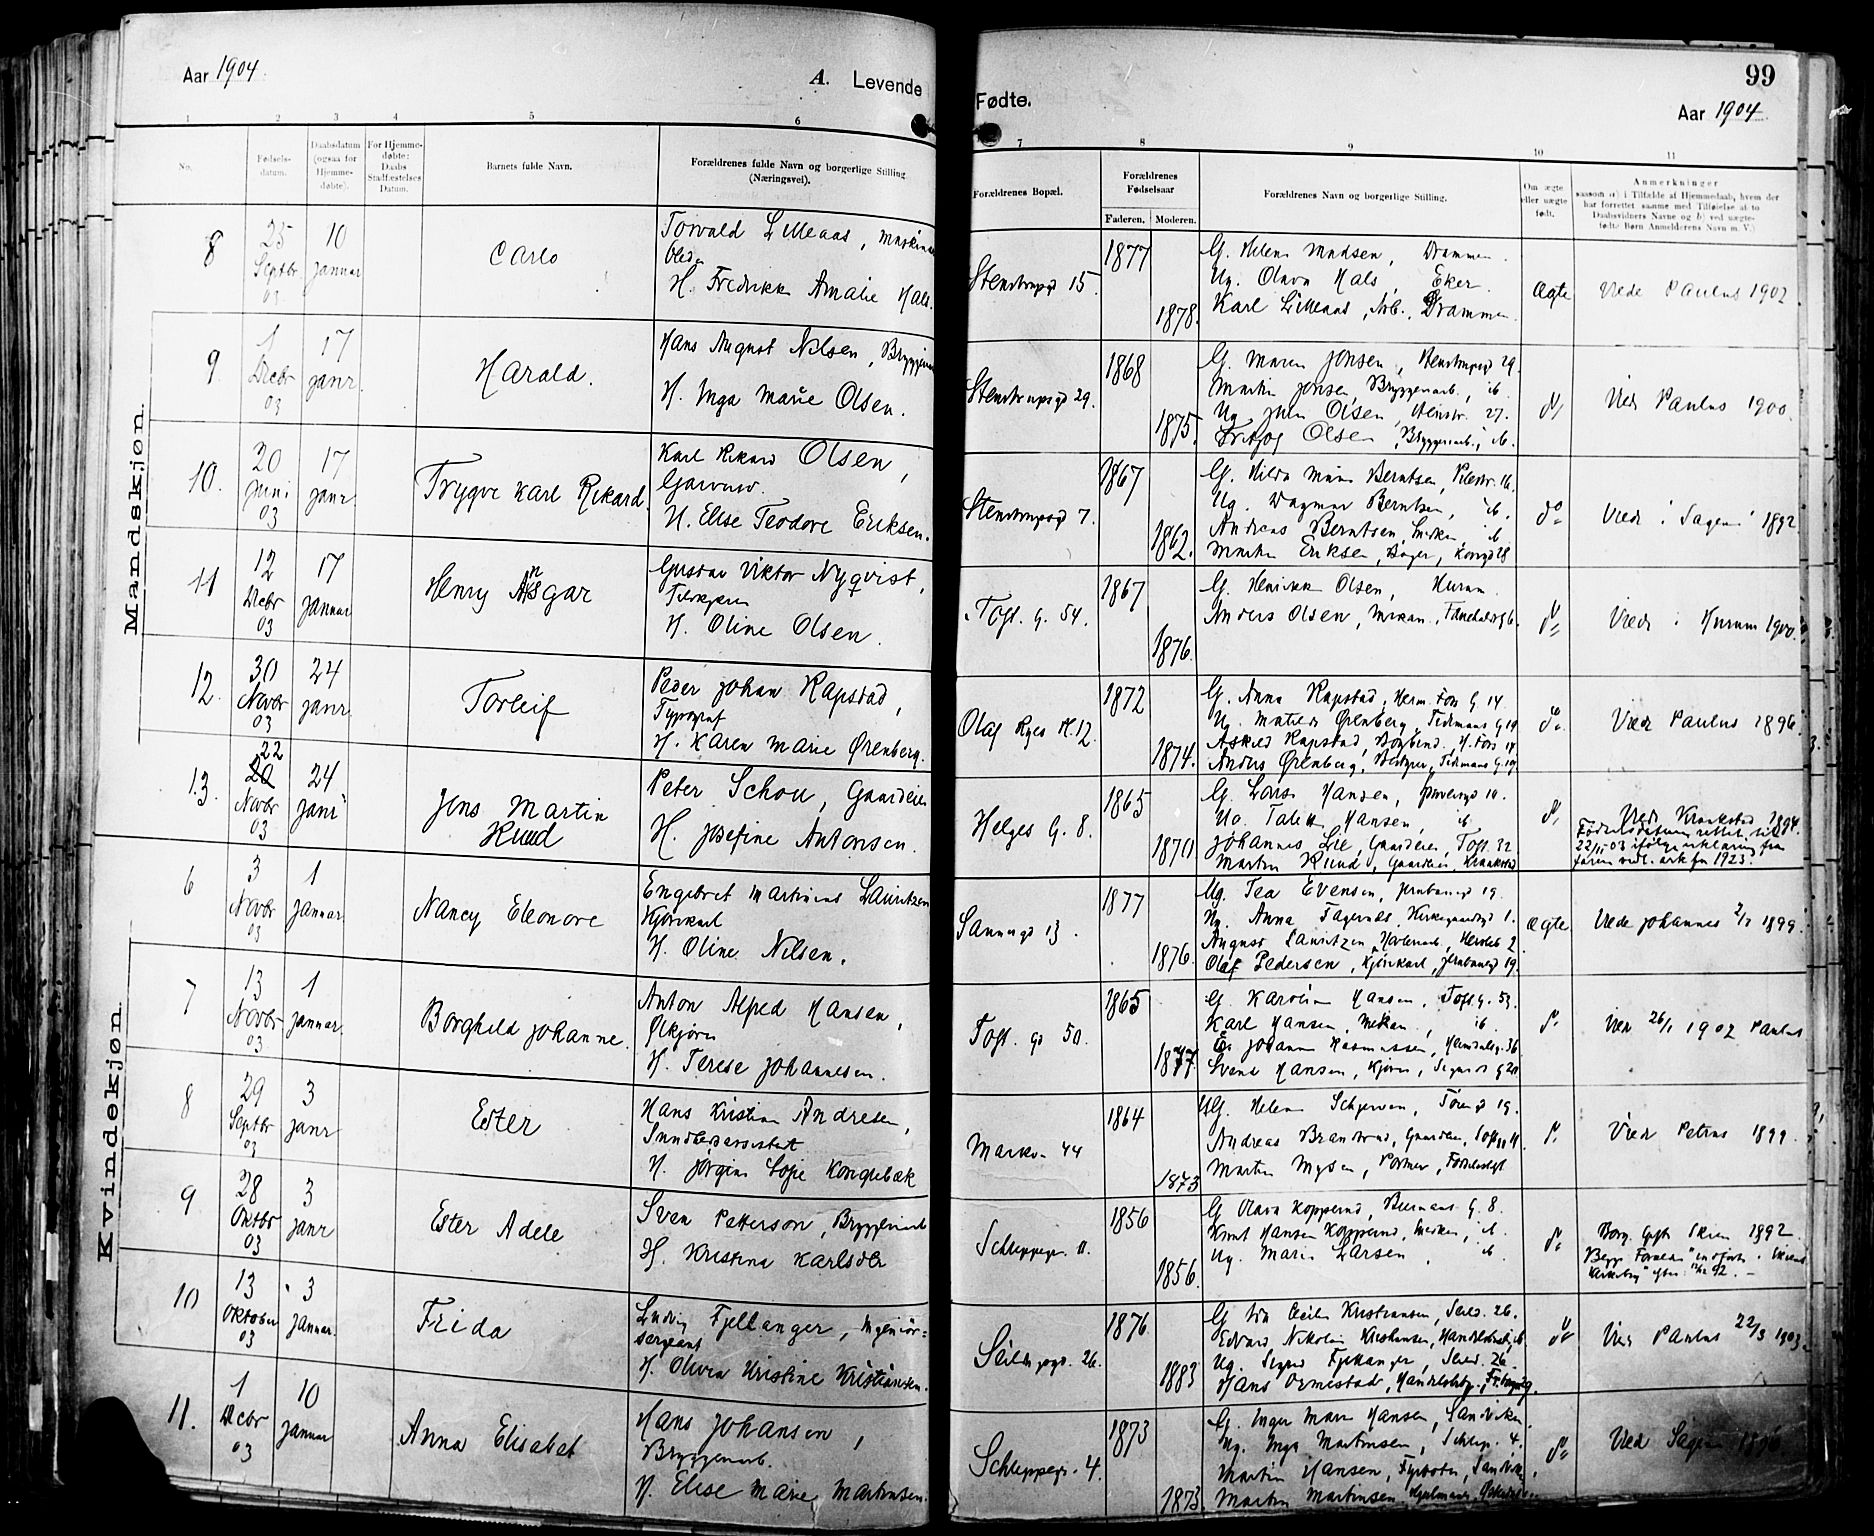 Aar 1904
A. Levende
Fødte.
99
Aar 1904
1
2
3
4
5
6
7
8
9
10
11
No.
Fødsels-
datum.
Daabsdatum
(ogsaa for
Hjemme-
døbte).
For Hjemme-
døbte:
Daabs
Stadfæstelses
Datum.
Barnets fulde Navn.
Forældrenes fulde Navn og borgerlige Stilling
(Næringsvei).
Forældrenes Bopæl.
Forældrenes
Fødselsaar
Faderen. Moderen.
Forældrenes Navn og borgerlige Stilling.
Om ægte
eller uægte
født.
Anmerkninger
saasom a) i Tilfælde af Hjemmedaab, hvem der
har forrettet samme med Tilføielse af to
Daabsvidners Navne og b) ved uægte-
fødte Børn Anmelderens Navn m. V.)
Mandskjøn.
8
25
Septbr
03
10
Januar
Carlo
Torvald Lilleaas,
H. Fredrikke Amalie Hals.
Stenstrupsgd 15
1877
1878.
G. Helene Madsen, Drammen.
Ug. Olava Hals, Eker.
Karl Lilleaas, Arb., Drammen.
Ægte
Viede Paulus 1902
9
1
Decbr
03
17
Janr.
Harald.
Hans August Nilsen,
H. Inga Marie Olsen.
Stenstrupsgd 29.
1868
1875.
G. Maren Jonsen, Stenstrupsgd 29.
Martin Jonsen, Bryggeriarb., ib.
Ug. Julie Olsen, Stenstr. 27.
Fritjog Olsen, Bryggeriarb., ib.
Viede Paulus 1900.
10.
20
Juni
03
17
Janr
Trygve Karl Rikard.
Karl Rikard Olsen,
H. Elise Teodore Eriksen.
Stenstrupsgd 7.
1867
1862.
G. Hilda Marie Berntsen, Pilestr. 16.
Ug. Dagmar Berntsen, ib.
Andreas Berntsen, ib
Martin Eriksen, Bager,
do
Viede i Sagene 1892
11
12
Decbr
03
17
Januar
Henry Ansgar
Gustav Viktor Nyqvist,
H. Oline Olsen.
Toft. G. 54.
1867
1876.
G. Henrikke Olsen, Hurum.
Anders Olsen, Mekan.,
Viede i Hurum 1900.
12.
30
Novbr
03
24
Janr.
Torleif
Peder Johan Rapstad,
Typograf
H. Karen Marie Ørenberg.
Olaf Ryes Pl. 12.
1872
1874.
G. Anna Rapstad, Herm. Foss G. 14.
Ug. Matilde Ørenberg, Tidemans G. 19
Askild Rapstad, Bogbind., H. Foss 14.
Anders Ørenberg, Bestyrer, Tidemans G. 19.
do
Viede Paulus 1896.
13.
22
20
Novbr
03
24
Janr
Jens Martin
Ruud
Peter Schou, Gaardeier
H. Josefine Antonsen.
Helges G. 8.
1865
1870
G. Lovise Hansen,
Ug. Talette Hansen, ib
Johannes Lie, Gaardeier, Toft. 32
Martin Ruud, Gaardeier, Kraakstad
Viede Kraakstad 1894.
Fødselsdatum rettet til
22/11-03 ifølge erklæring fra
faren vedl. ark for 1923.
Kvindekjøn.
6
3
Novbr
03
1
Januar
Nancy Eleonore
Engebret Martinius Lauritzen
Kjørekarl
H. Oline Nilsen.
Sannergd 13.
1877
1876.
Ug. Tea Evensen, Jernbanegd 19.
Ug. Anna Fagernes, Kirkegaardsgd 1.
August Lauritzen, Høvleriarb., Hersleb 2.
Olaf Pedersen, Kjørekarl, Jernbanegd 19.
Ægte
Viede Johannes 2/7 1899.
7
13
Novbr
03
1
Januar.
Borghild Johanne.
Anton Alfred Hansen,
Ølkjører
H. Terese Johannesen.
Toft. gd 50.
1865
1877.
G. Karoline Hansen, Toft. G. 53.
Karl Hansen, Mekan., ib.
Johanne Rasmussen, 36
Svend Hansen, Kjører,
Vie 26/1 1902 Paulus
8
29
Septbr
03
3
Janr
Ester
Hans Kristian Andresen,
H. Jørgine Sofie Kongsbæk
Markv. 44
1864
1873
UG. Helene Schjerven, 19.
Andreas Branderud, Gaardeier,
Martin Mysen,
Viede Petrus 1899.
9
28
Oktbr
03
3
Janr
Ester Adele
Sven Petterson, Bryggeriarb
H. Kristina Karlsdtr
Schleppegr. 11.
1856
1856.
G. Olava Kopperud, G. 8.
Knut Hansen Kopperud, ib.
Ug. Marie Larsen, ib.
Borg. Gift Skien 1892.
10
13
Oktober
03
3
Januar.
Frida
Ludvig Fjellanger, Ingeniør-
sergeant
H. Oliva Kristine Kristiansen.
Seilds.gd. 26.
1876
1883
G. Ida Cecilie Kristiansen, 26.
Edvard Nikolai Kristiansen,
Ug. Signe Fjellanger, 26.
Hans Ormestad, Handelsbetj.,
Vied Paulus 22/3 1903
11.
1
Decbr
03
10
Januar
Anna Elisabet
Hans Johansen,
Bryggeriarb.
H. Elise Marie Martinsen.
Schleppegr. 4.
1873
1873.
G. Inger Marie Hansen, Sandviken.
Ug. Inga Martinsen, Schlep. 4.
Martin Hansen, Fyrbøter, Sandviken.
Martin Martinsen,
Vied Sagene 1896